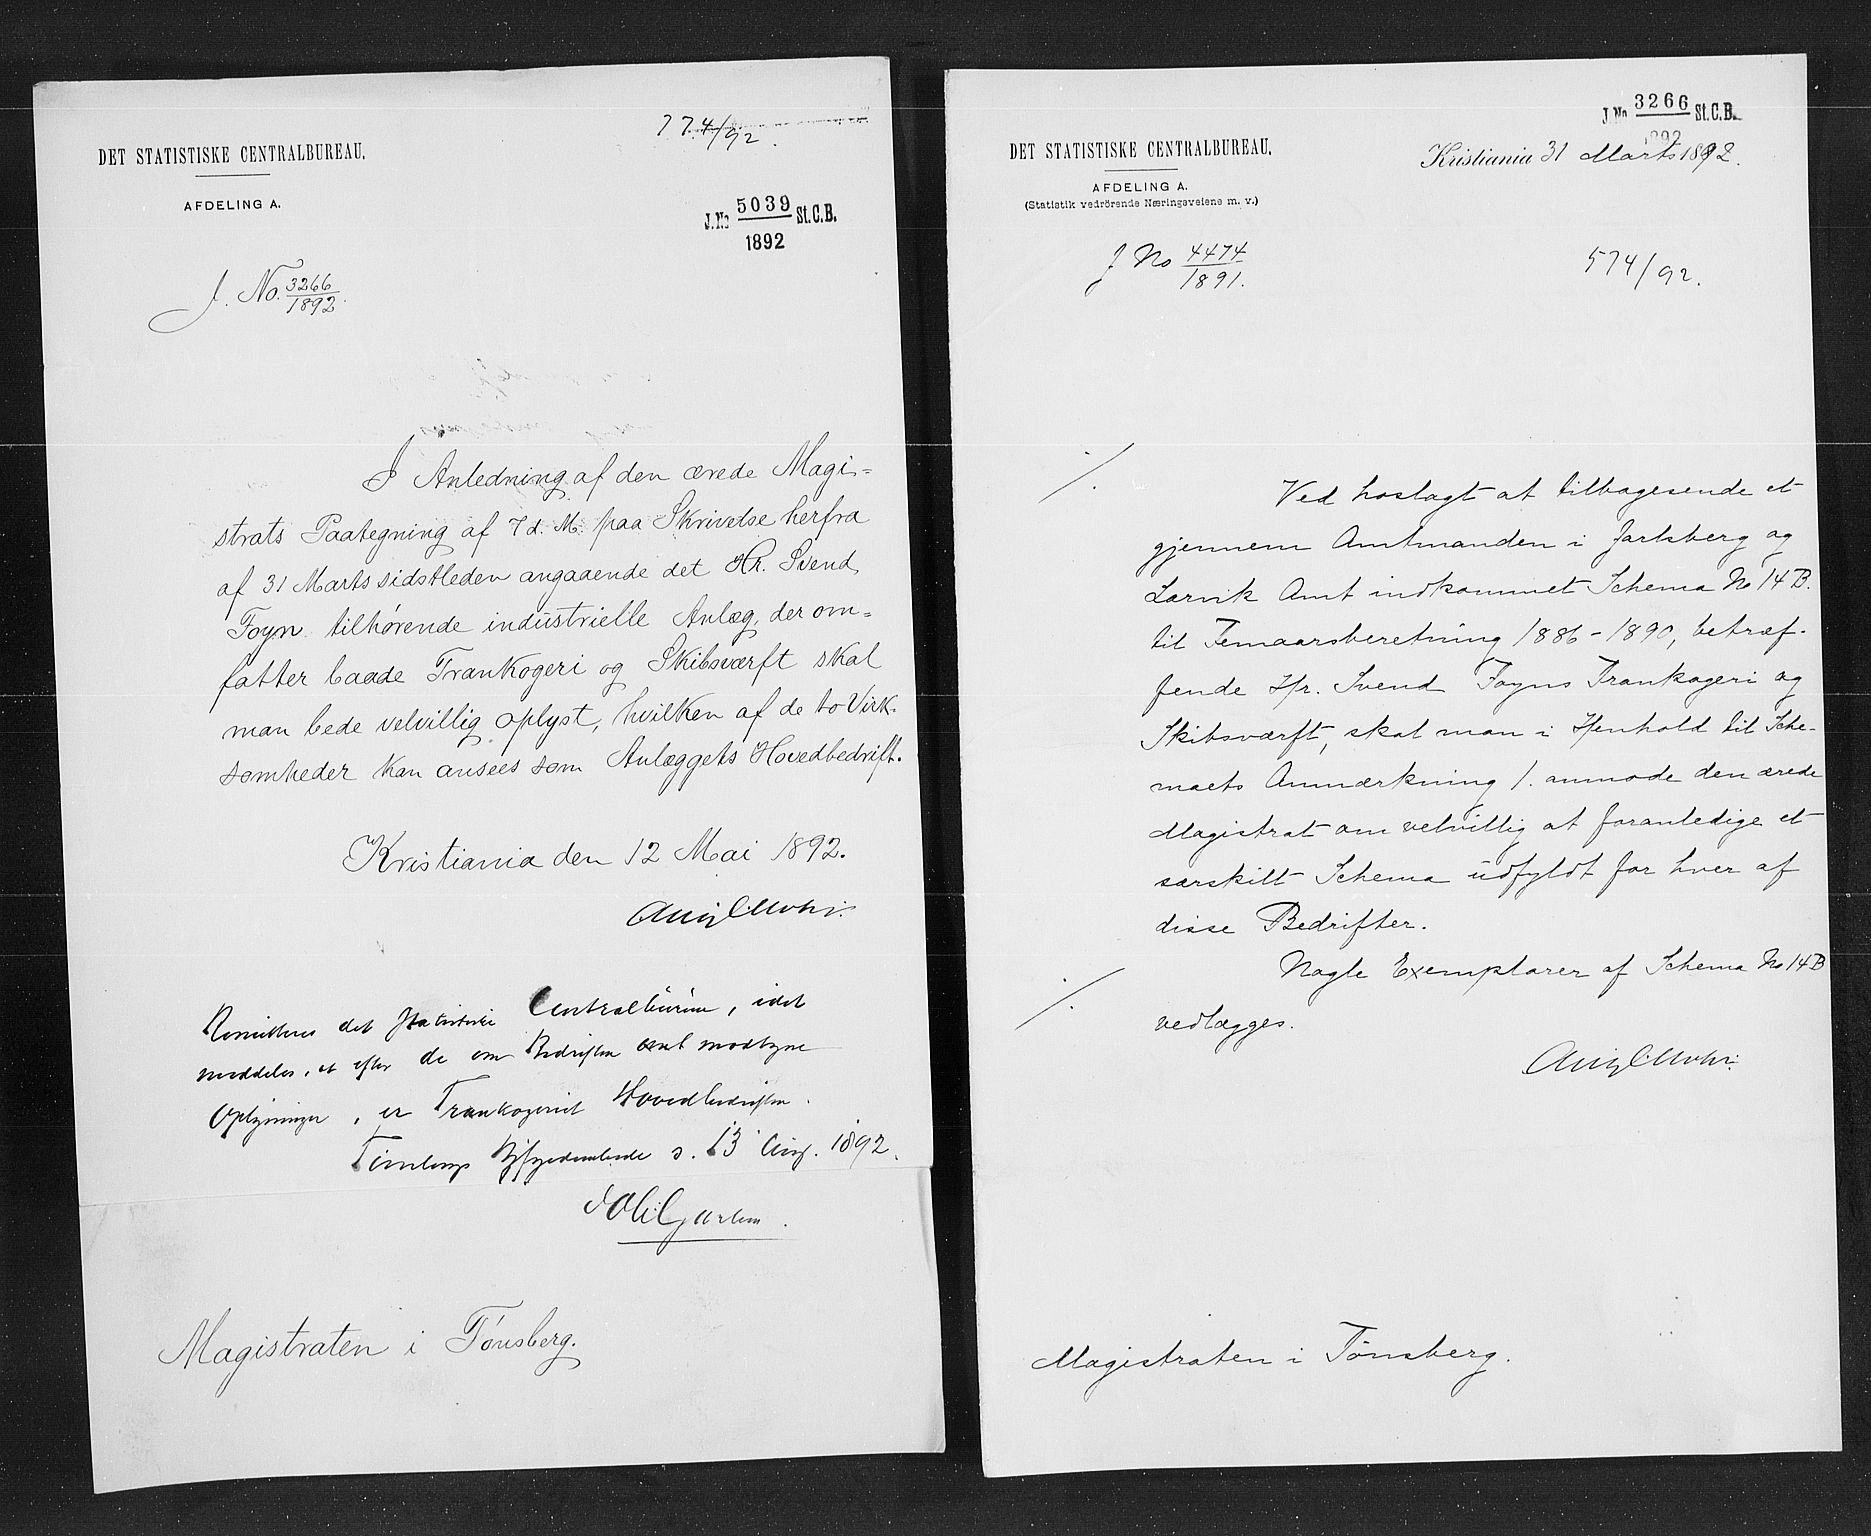 774/92.
DET STATISTISKE CENTRALBUREAU.
AFDELING A.
J. No 5039 St. C. B.
1892
J. No. 3266
1892.
I Anledning af den ærede Magi=
strats Paategning af 7 d. M. paa Skrivelse herfra
af 31 Marts sidstleden angaaende det Hr. Svend
Foyn tilhørende industrielle Anlæg, der om=
fatter baade Trankogeri og Skibsværft skal
man bede velvillig oplyst, hvilken af de to Virk-
somheder kan ansees som Anlæggets Hovedbedrift.
Kristiania den 12 Mai 1892.
Remitteres det statistiske Centralbureau, idet
meddeles, at efter de om Bedriften
Oplysninger, er Trankogeriet Hovedbedriften.
Tønsberg d. 13 Aug. 1892.
Magistraten i Tønsberg.
J. No 3266 St. C. B.
892
DET STATISTISKE CENTRALBUREAU.
Kristiania 31 Marts 1892.
AFDELING A.
(Statistik vedrörende Næringsveiene m. v.)
J No 4474
1891.
574/92.
Ved hoslagt at tilbagesende et
gjennem Amtmanden i Jarlsberg og
Larvik Amt indkommet Schema No 14 B.
til Femaarsberetning 1886-1890, betræf-
fende Hr. Svend Foyns Trankogeri og
Skibsværft, skal man i Henhold til Sche-
maets Anmærkning 1. anmode den ærede
Magistrat om velvillig at foranledige et
særskilt Schema udfyldt for hver af
disse Bedrifter.
Nogle Exemplarer af Schema No 14 B
vedlægges.
Magistraten i Tønsberg.